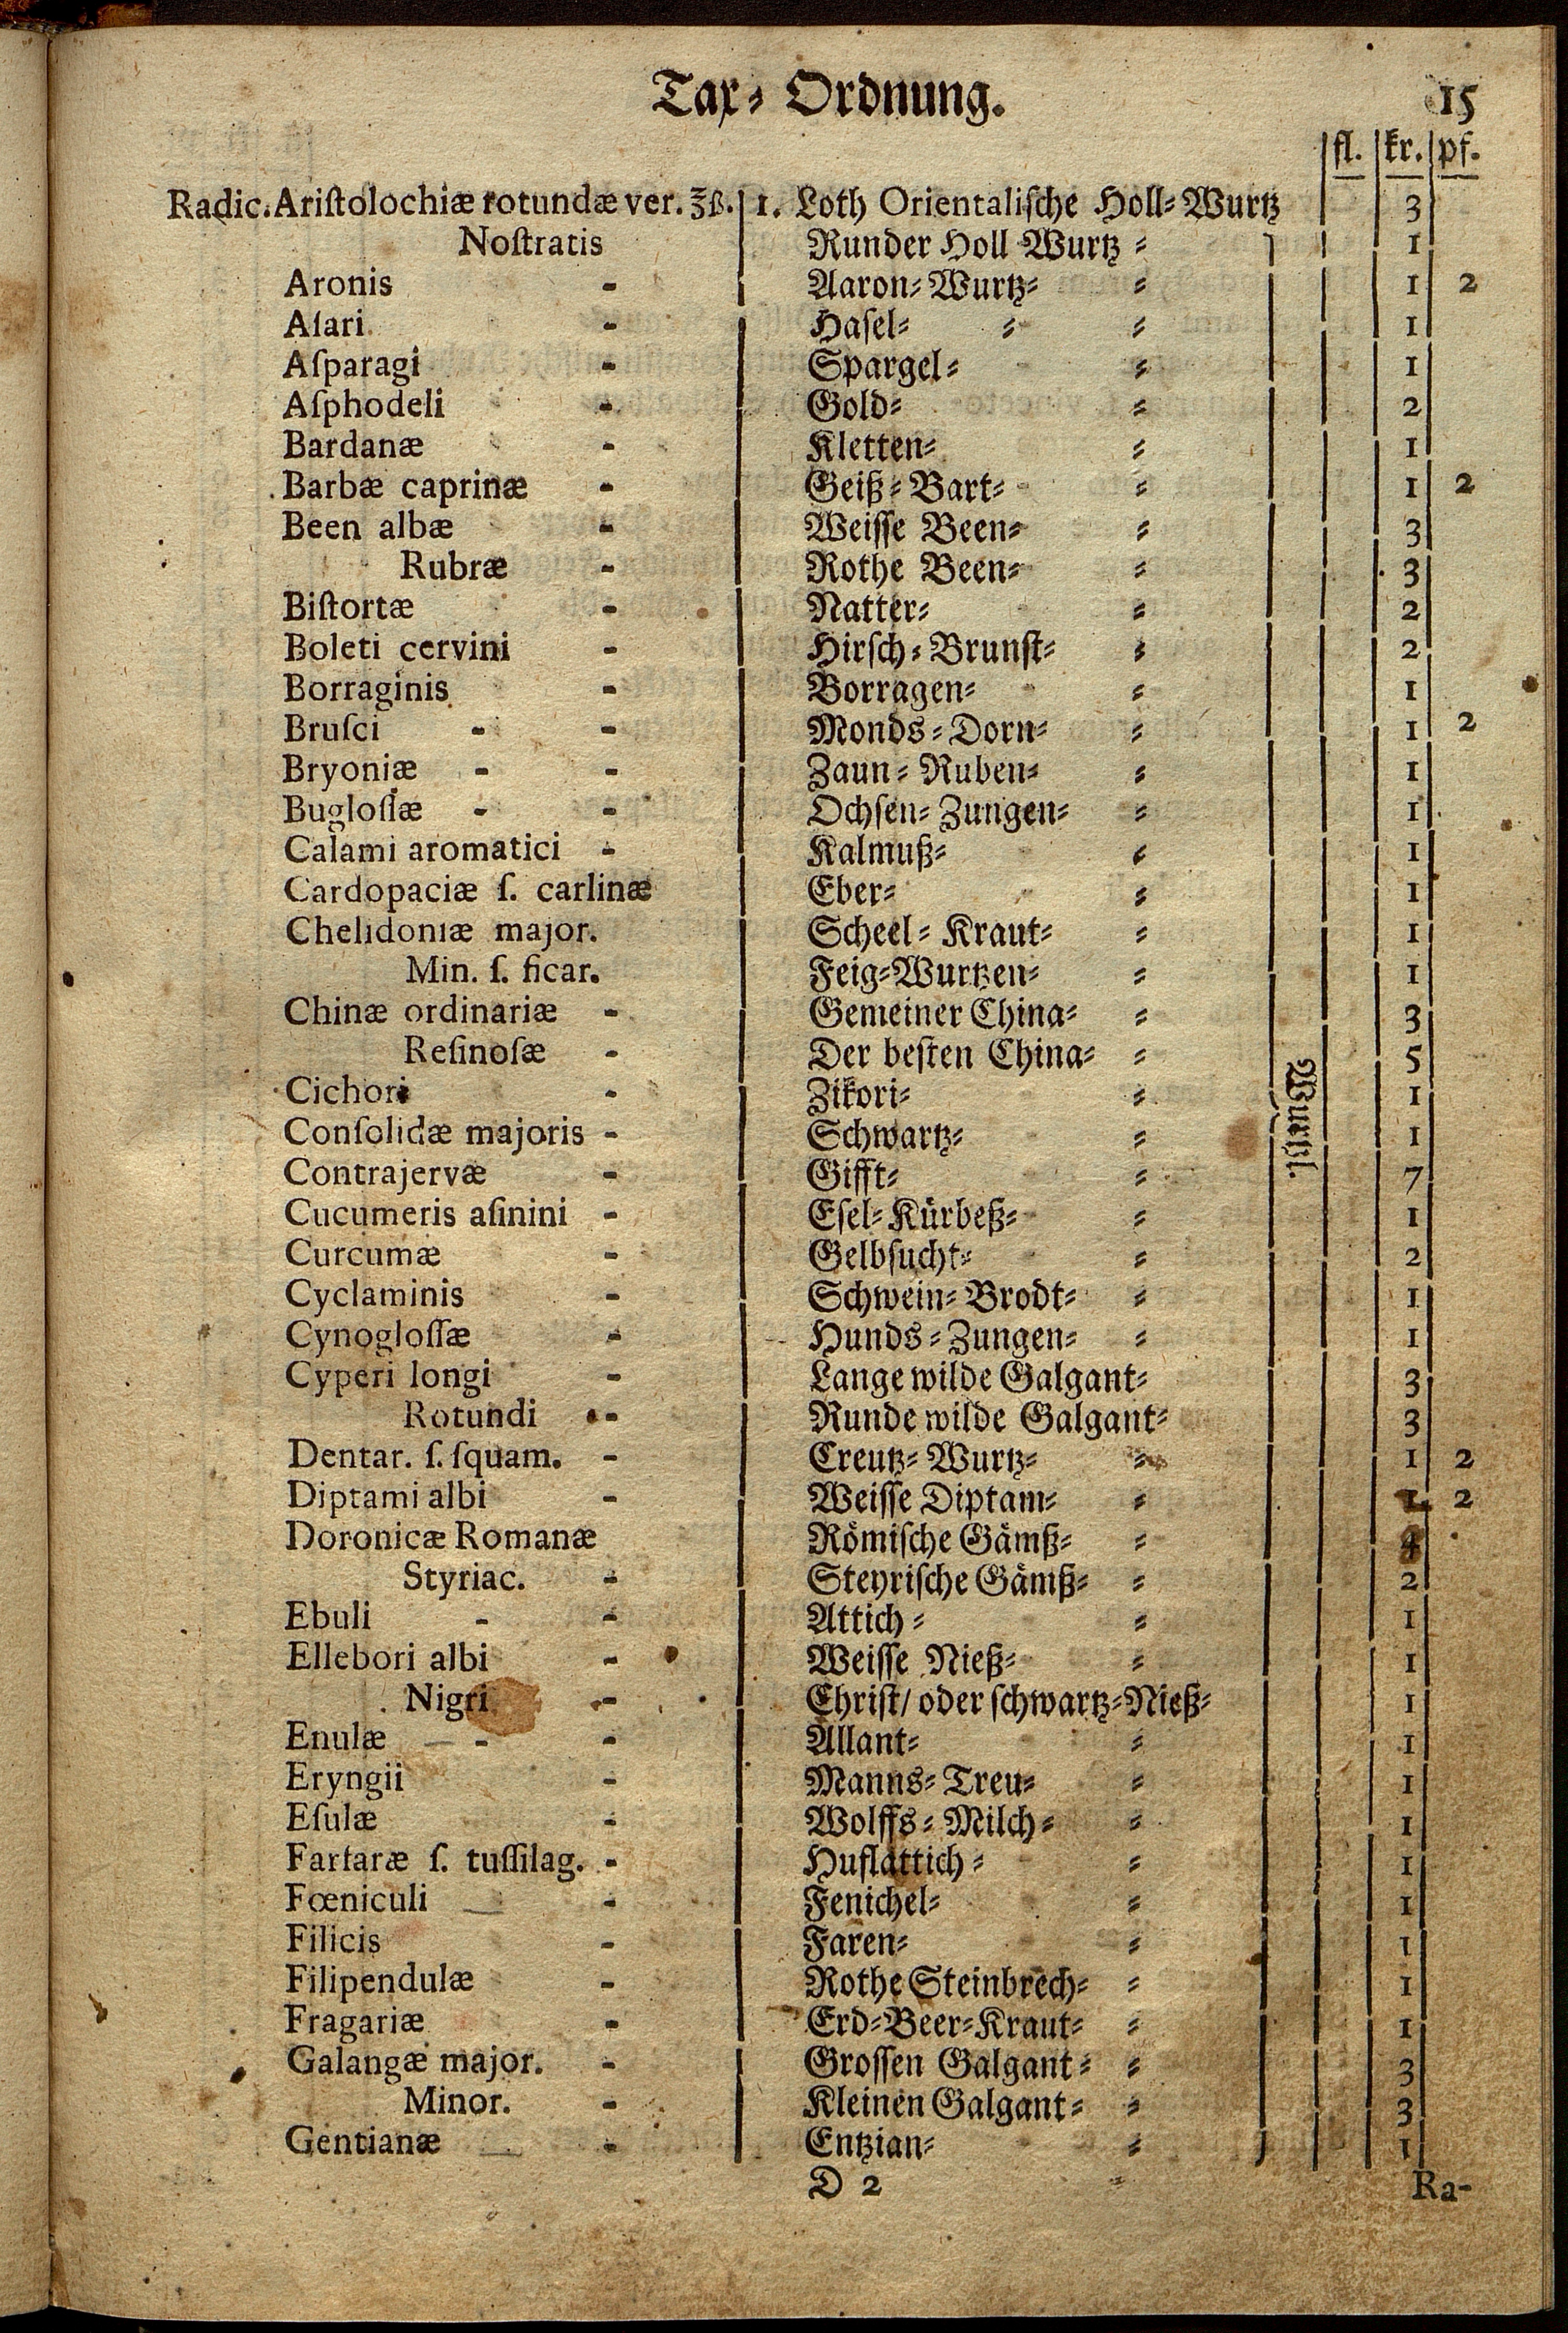 Tax⸗ Ordnung. 15
fl. kr. pf.
Radic. Ariſtolochiæ rotundæ ver. ℥ß. 1. Loth Orientaliſche Holl⸗Wurtz 3
Noſtratis Runder Holl Wurtz ⸗ 1
Aronis - Aaron⸗Wurtz⸗ ⸗ 1 2
Aſari - Haſel⸗ ⸗ ⸗ 1
Aſparagi - Spargel⸗ ⸗ 1
Aſphodeli - Gold⸗ ⸗ 2
Bardanæ - Kletten⸗ ⸗ 1
Barbæ caprinæ - Geiß⸗Bart⸗ ⸗ 1 2
Been albæ - Weiſſe Been⸗ ⸗ 3
Rubræ - Rothe Been⸗ ⸗ 3
Biſtortæ - Natter⸗ ⸗ 2
Boleti cervini - Hirſch⸗Brunſt⸗ ⸗ 2
Borraginis - Borragen⸗ ⸗ 1
Bruſci - - Monds⸗Dorn⸗ ⸗ 1 2
Bryoniæ - - Zaun⸗Ruben⸗ ⸗ 1
Bugloſſæ - - Ochſen⸗Zungen⸗ ⸗ 1
Calami aromatici - Kalmuß⸗ ⸗ 1
Cardopaciæ ſ. carlinæ Eber⸗ ⸗ 1
Chelidoniæ major. Scheel⸗Kraut⸗ ⸗ 1
Min. ſ. ficar. Feig⸗Wurtzen⸗ ⸗ 1
Chinæ ordinariæ - Gemeiner China⸗ ⸗ 3
Reſinoſæ - Der beſten China⸗ ⸗ 5
Cichori - Zikori⸗ ⸗ 1
Conſolidæ majoris - Schwartz⸗ ⸗ 1
Contrajervæ - Gifft⸗ ⸗ 7
Wurtzl.
Cucumeris aſinini - Eſel⸗Kürbeß⸗ ⸗ 1
Curcumæ - Gelbſucht⸗ ⸗ 2
Cyclaminis - Schwein⸗Brodt⸗ ⸗ 1
Cynogloſſæ - Hunds⸗Zungen⸗ ⸗ 1
Cyperi longi - Lange wilde Galgant⸗ 3
Rotundi - Runde wilde Galgant⸗ 3
Dentar. ſ. ſquam. - Creutz⸗Wurtz⸗ ⸗ 1 2
Diptami albi - Weiſſe Diptam⸗ ⸗ 1 2
Doronicæ Romanæ Römiſche Gämß⸗ ⸗ 4
Styriac. - Steyriſche Gämß⸗ ⸗ 2
Ebuli - - Attich⸗ ⸗ 1
Ellebori albi - Weiſſe Nieß⸗ ⸗ 1
Nigri - Chriſt/ oder ſchwartz⸗Nieß⸗ 1
Enulæ - - Allant⸗ ⸗ 1
Eryngii - Manns⸗Treu⸗ ⸗ 1
Eſulæ - Wolffs⸗Milch⸗ ⸗ 1
Farfaræ ſ. tuſſilag. - Huflattich⸗ ⸗ 1
Fœniculi - Fenichel⸗ ⸗ 1
Filicis - Faren⸗ ⸗ 1
Filipendulæ - Rothe Steinbrech⸗ ⸗ 1
Fragariæ - Erd⸗Beer⸗Kraut⸗ ⸗ 1
Galangæ major. - Groſſen Galgant⸗ ⸗ 3
Minor. - Kleinen Galgant⸗ ⸗ 3
Gentianæ - Entzian⸗ ⸗ 1
D 2 Ra-